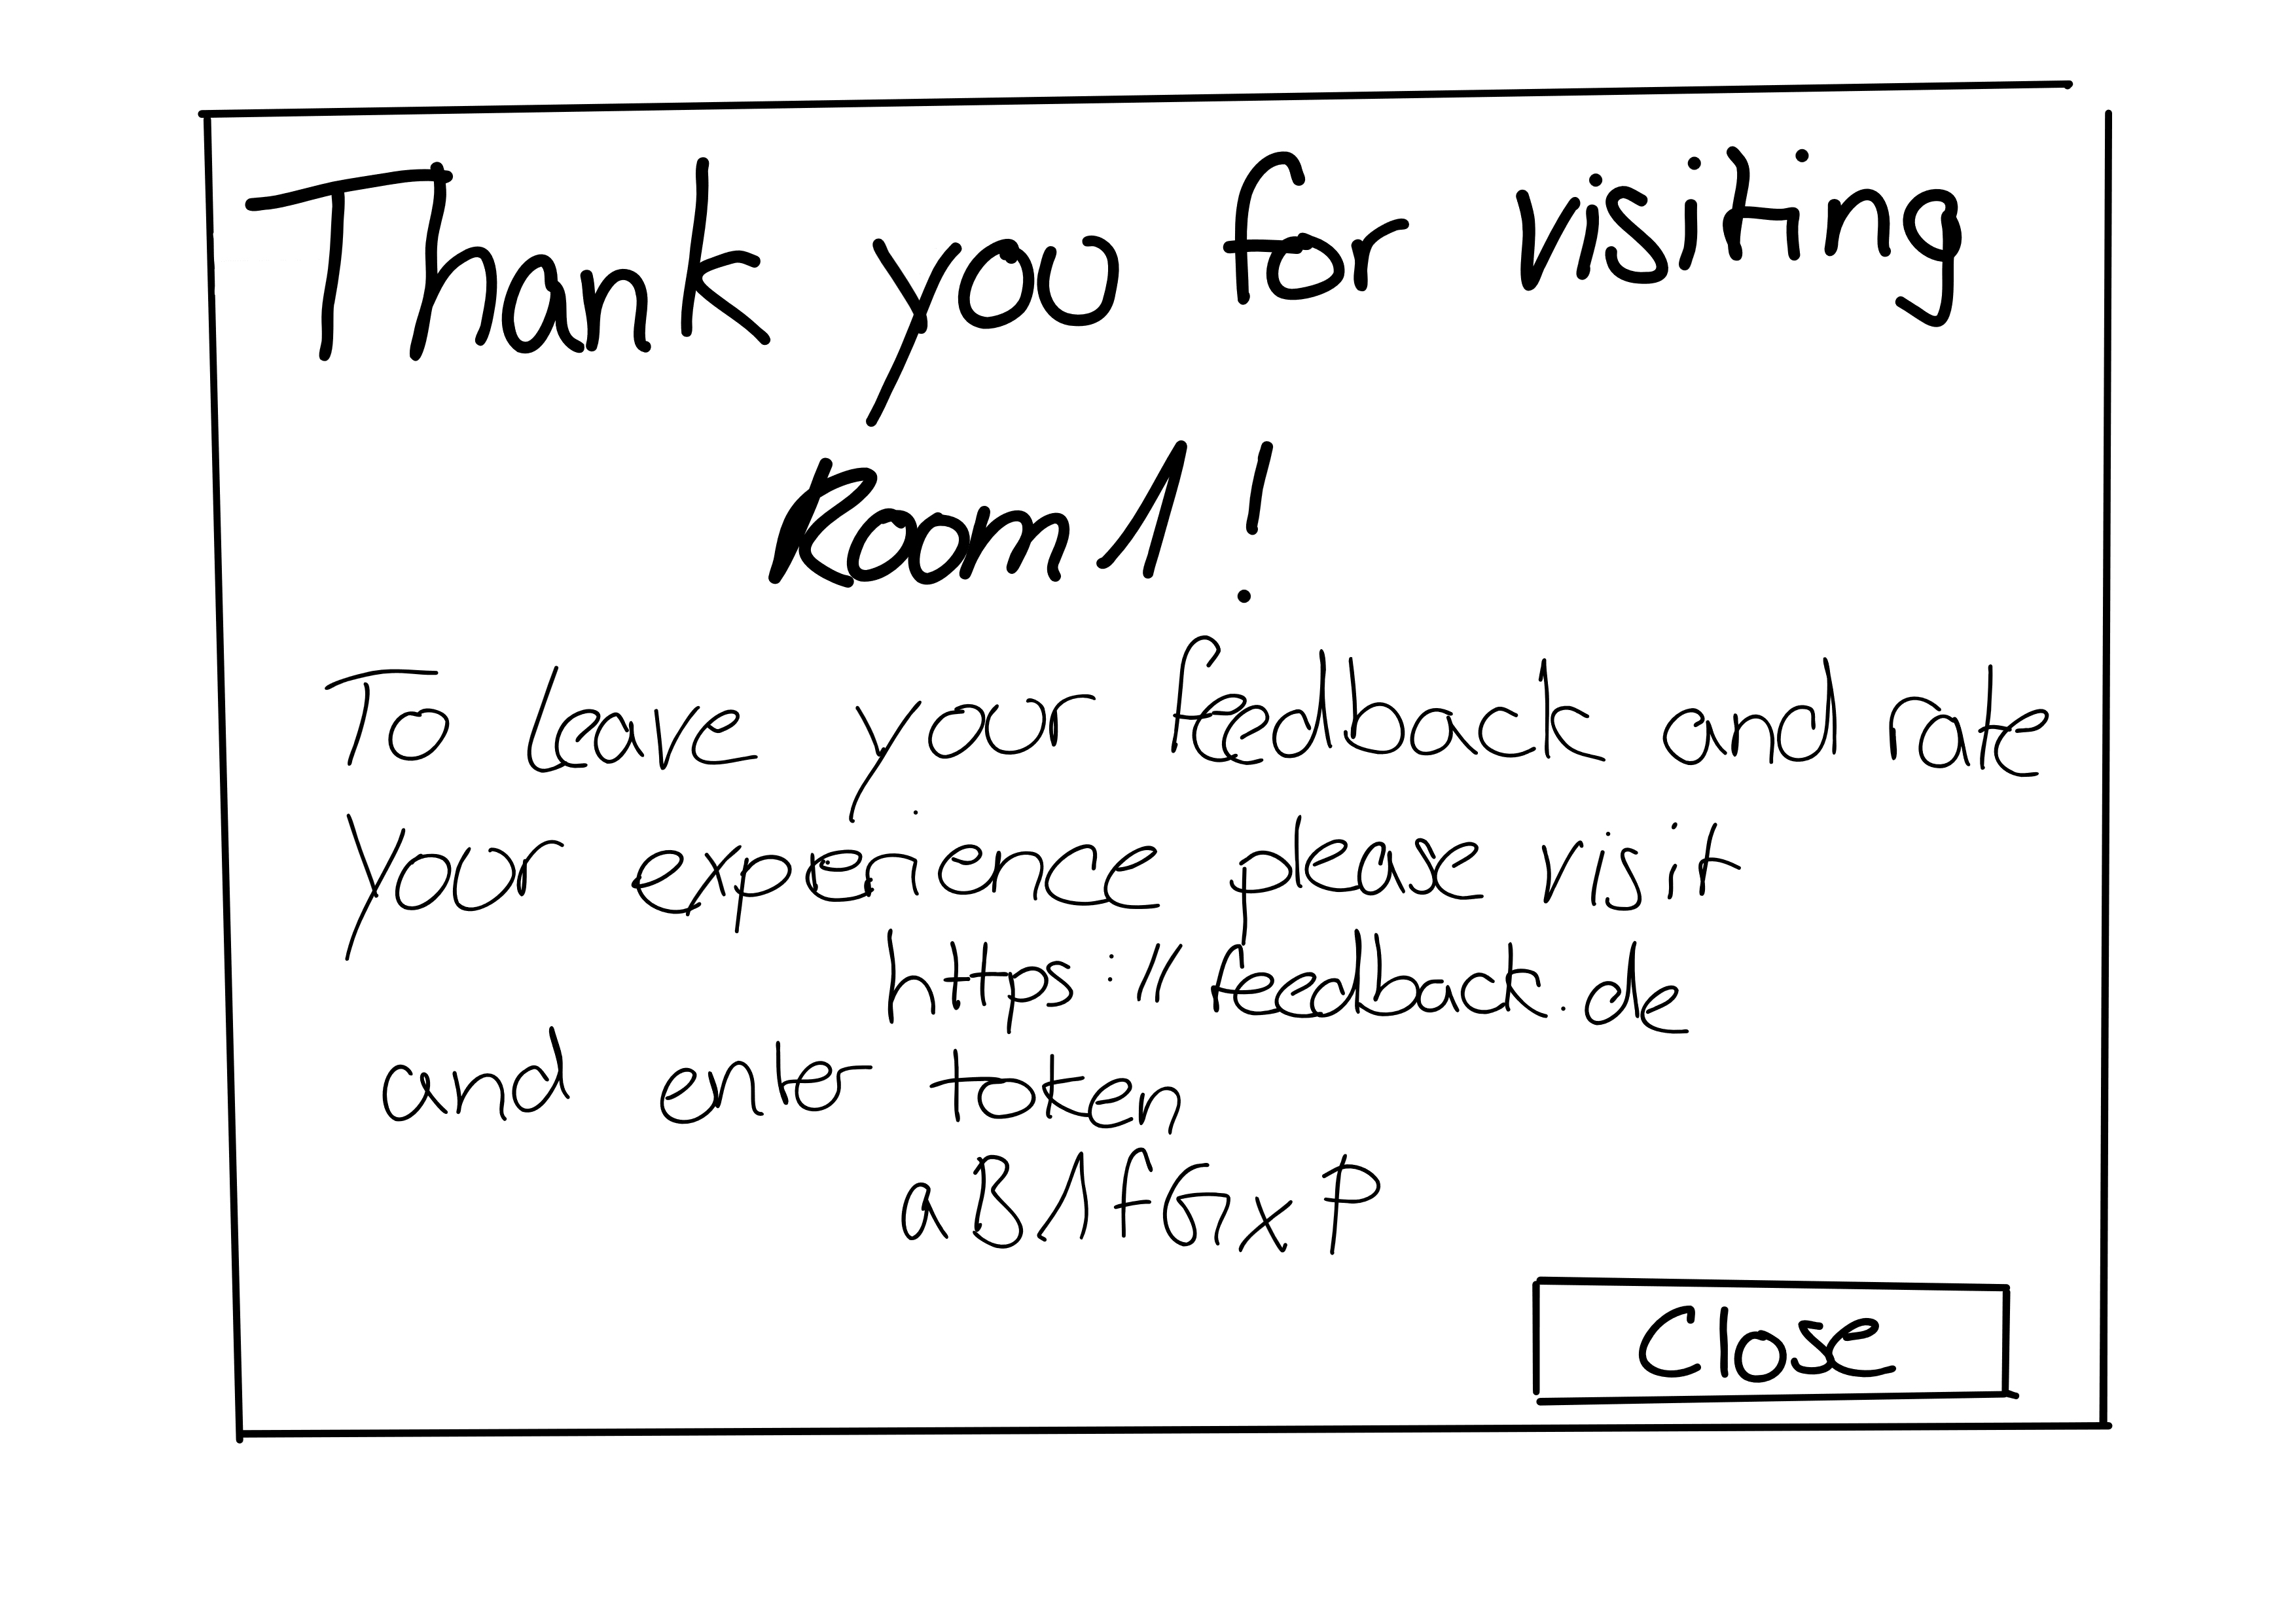 Thank you for visiting
Room 1!
To leave your feedback and rate
your experience please visit
https://feedback.de
and enter token
aB1fGxP
Close